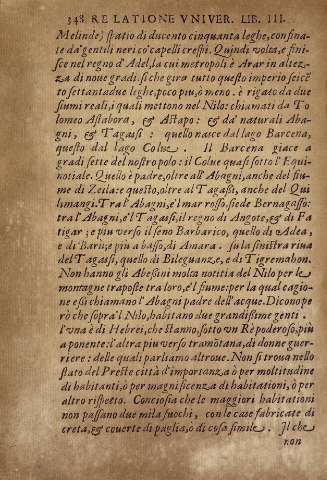 348 RELATIONE VNIVER. LIB. III.
Melinde) spatio di ducento cinquanta leghe, confina-
te da'gentili neri co' capelli crespi. Quindi volta, e fini-
sce nel regno d'Adel, la cui metropoli è Arar in altez-
za di noue gradi. si che gira tutto questo imperio seicẽ
to settantadue leghe, poco piu, ò meno. è rigato da due
fiumi reali, i quali mettono nel Nilo: chiamati da To-
lomeo Astabora, & Astapo: & da' naturali Aba-
gni, & Tagassi: quello nasce dal lago Barcena,
questo dal lago Colue. Il Barcena giace a
gradi sette del nostro polo: il Colue quasi sotto l'Equi-
notiale. Quello è padre, oltre all'Abagni, anche del fiu-
me di Zeila: e questo, oltre al Tagassi, anche del Qui
limangi. Tra l'Abagni, e'l mar rosso, siede Bernagasso:
tra l'Abagni, e'l Tagassi, il regno di Angote, & di Fa
tigar; e piu verso il seno Barbarico, quello di Adea,
e di Barù; e più a basso, di Amara. su la sinistra riua
del Tagassi, quello di Bileguanze, e di Tigremahon.
Non hanno gli Abessini molta notitia del Nilo per le
montagne traposte tra loro, e'l fiume: per la qual cagio-
ne essi chiamano l'Abagni padre dell'acque. Dicono pe
rò che sopra'l Nilo, habitano due grandissime genti.
l'vna è di Hebrei, che stanno, sotto vn Rè poderoso, più
a ponente: l'altra piu verso tramõtana, di donne guer-
riere: delle quali parliamo altroue. Non si troua nello
stato del Prette città d'importanza ò per moltitudine
di habitanti, ò per magnificenza di habitationi, ò per
altro rispetto. Conciosia che le maggiori habitationi
non passano due mila fuochi, con le case fabricate di
creta, & couerte di paglia, ò di cosa simile. Il che
non